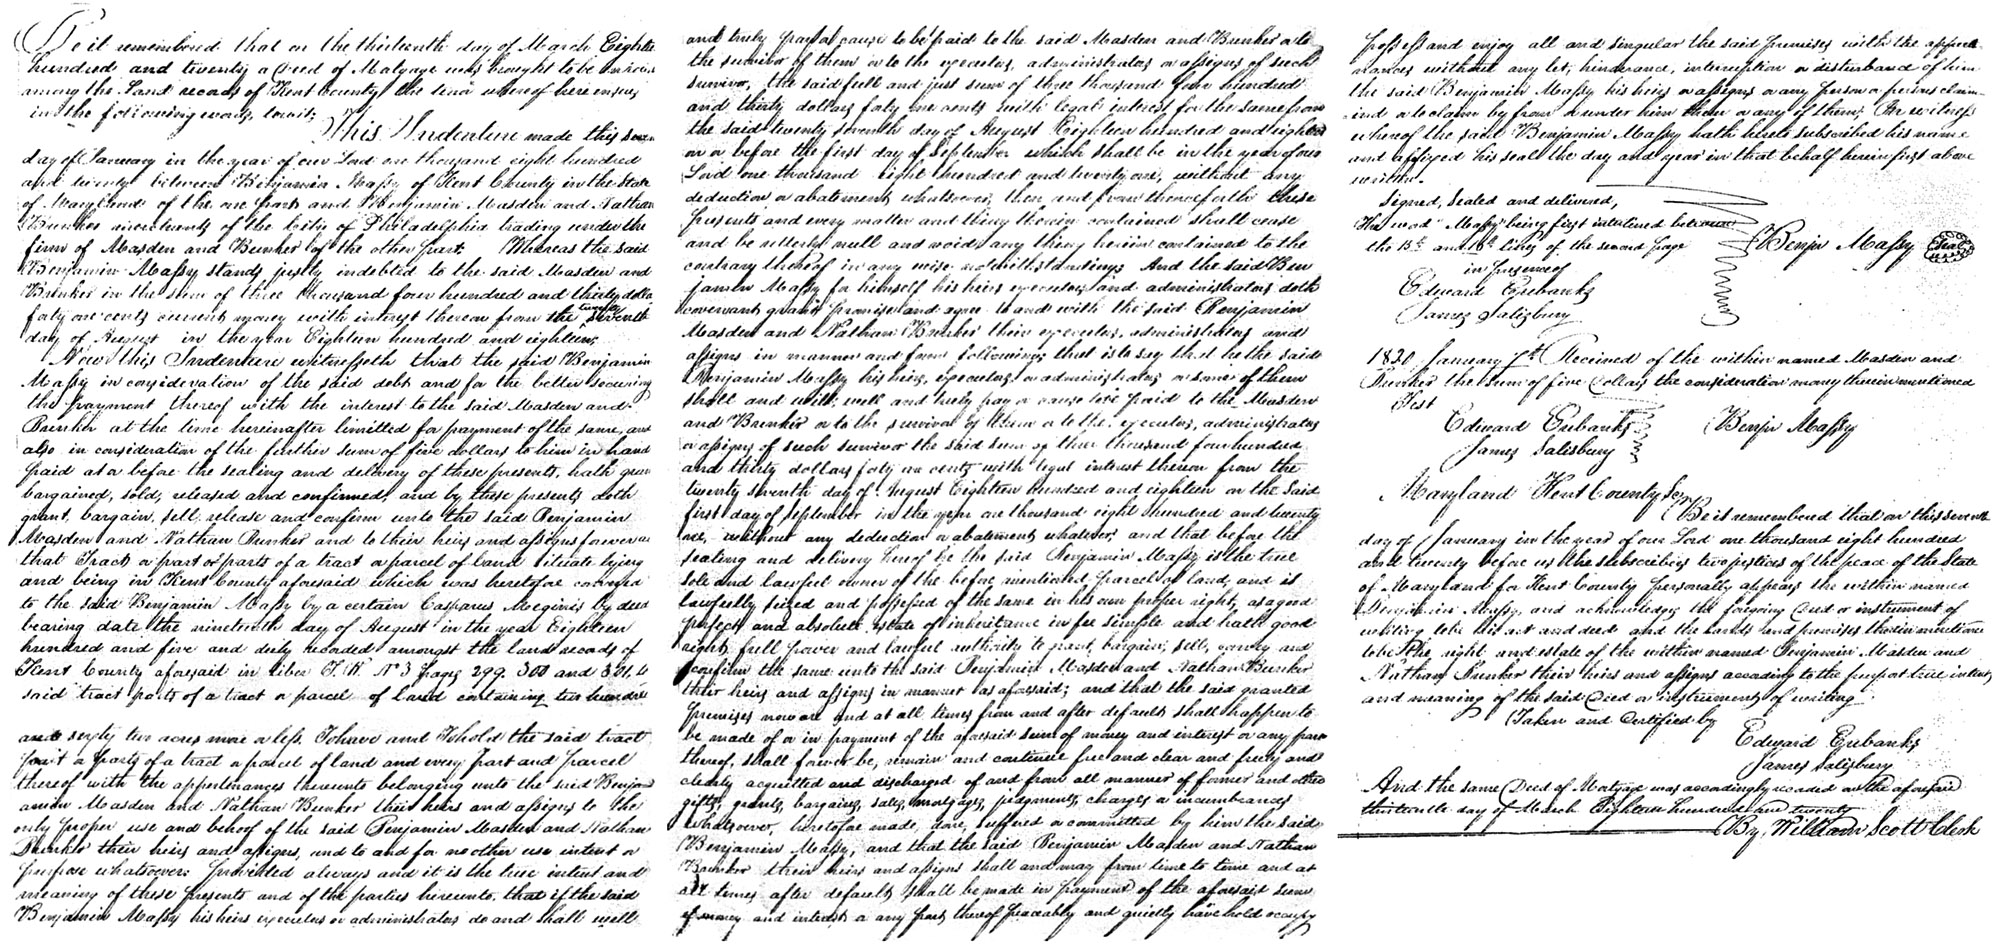 Be it remembered that on the thirteenth day of March Eighteen
hundred and twenty a Deed of Mortgage was brought to be
among the Land records of Kent County the tenor whereof here ensues
in the following words, towit;
This Indenture made this seven
day of January in the year of our Lord one thousand eight hundred
and twenty between Benjamin Massy of Kent County in the State
of Maryland of the one part and Benjamin Masden and Nathan
Bunker merchants of the City of Philadelphia trading under the
firm of Masden and Bunker of the other part. Whereas the said
Benjamin Massy stands justly indebted to the said Masden and
Bunker in the sum of three thousand four hundred and thirty dollars
forty one cents current money with interest thereon from the twenty seventh
day of August in the year Eighteen hundred and eighteen,
Now this Indenture witnesseth that the said Benjamin
Massy in consideration of the said debt and for the better securing
the payment thereof with the interest to the said Masden and
Bunker at the time hereinafter limitted for payment of the same, and
also in consideration of the further sum of five dollars to him in hand
paid at or before the sealing and delivery of these presents, hath
bargained, sold, released and confirmed, and by these presents doth
grant, bargain, sell, release and confirm unto the said Benjamin
Masden and Nathan Bunker and to their heirs and assigns forever
that Tract or part or parts of a tract or parcel of land situate lying
and being in Kent County aforesaid which was heretofore conveyed
to the said Benjamin Massy by a certain Casparus Meginis by deed
bearing date the nineteenth day of August in the year Eighteen
hundred and five and duly recorded amongst the land records of
Kent County aforesaid in liber T. W. No 3 pages 299. 300 and 301.
said tract parts of a tract or parcel of land containing two hundred
and sixty two acres more or less. To have and to hold the said tract
part or parts of a tract or parcel of land and every part and parcel
thereof with the appurtenances thereunto belonging unto the said Benja
amin Masden and Nathan Bunker their heirs and assigns to the
only proper use and behoof of the said Benjamin Masden and Nathan
Bunker their heirs and assigns, and to and for no other use intent or
purpose whatsoever: provided always and it is the true intent and
meaning of these presents and of the parties hereunto, that if the said
Benjamin Massy his heirs executors or administrators do and shall well
and truly pay or cause to be paid to the said Masden and Bunker or to
the survivor of them or to the executors, administrators or assigns of such
survivor, the said full and just sum of three thousand four hundred
and thirty dollars forty one cents with legal interest for the same from
the said twenty seventh day of August Eighteen hundred and eighteen
on or before the first day of September which shall be in the year of our
Lord one thousand eight hundred and twenty one, without any
deduction or abatement whatsoever, then and from thenceforth these
presents and every matter and thing therein contained shall cease
and be utterly null and void, any thing herein contained to the
contrary thereof in any wise notwithstanding; And the said Ben
jamin Massy for himself his heirs executors and administrators doth
covenant grant promise and agree to and with the said Benjamin
Masden and Nathan Bunker their executors, administrators and
assigns in manner and form following; that is to say that he the said
Benjamin Massy his heirs, executors, or administrators or some of them
shall and will, well and truly pay or cause to be paid to the Masden
and Bunker or to the survivor of them or to the executors, administrators
or assigns of such survivor the said sum of three thousand four hundred
and thirty dollars forty one cents with legal interest thereon from the
twenty seventh day of August Eighteen hundred and eighteen on the said
first day of September in the year one thousand eight hundred and twenty
one, without any deduction or abatement whatever, and that before the
sealing and delivery hereof he the said Benjamin Massy is the true
sole and lawful owner of the before mentioned parcel of land, and is
lawfully seized and possessed of the same in his own proper right, as a good
perfect and absolute estate of inheritance in fee simple and hath good
right, full power and lawful authority to grant, bargain, sell, convey and
confirm the same unto the said Benjamin Masden and Nathan Bunker
their heirs and assigns in manner as aforesaid; and that the said granted
premises now are and at all times from and after default shall happen to
be made of or in payment of the aforesaid sum of money and interest or any part
thereof, shall forever be, remain and continue free and clear and freely and
clearly acquitted and discharged of and from all manner of former and other
gifts, grants, bargains, sales, mortgages, judgments, charges or incumbrances
whatsoever, heretofore made, done, suffered or committed by him the said
Benjamin Massy, and that the said Benjamin Masden and Nathan
Bunker their heirs and assigns shall and may from time to time and at
all times after default shall be made in payment of the aforesaid sum
of money and interest or any part thereof peaceably and quietly have hold occupy
possess and enjoy all and singular the said premises with the appurte
nances without any let, hinderance, interruption or disturbance of him
the said Benjamin Massy his heirs or assigns or any person or persons claim-
ing or to claim by from or under him them or any of them; In witness
whereof the said Benjamin Massy hath hereto subscribed his name
and affixed his seal the day and year in that behalf herein first above
written.
Signed, sealed and delivered,
The word "Massy" being first interlined between
the 15th and 16th lines of the second page
Benjn Massy Seal
in presence of
Edward Eubanks
James Salisbury
1820 January 7th Received of the within named Masden and
Bunker the sum of five Dollars the consideration money therein mentioned
Test
Edward Eubanks Benjn Massy
James Salisbury
Maryland Kent County Sc,
Be it remembered that on this seventh
day of January in the year of our Lord one thousand eight hundred
and twenty before us the subscribers two justices of the peace of the State
of Maryland for Kent County personally appears the within named
Benjamin Massy, and acknowledges the foregoing Deed or instrument of
writing to be his act and deed and the lands and premises therein mentioned
to be the right and estate of the within named Benjamin Masden and
Nathan Bunker their heirs and assigns according to the purport true intent
and meaning of the said Deed or instrument of writing.
Taken and Certified by
Edward Eubanks
James Salisbury
And the same Deed of Mortgage was accordingly recorded on the aforesaid
thirteenth day of March Eighteen hundred and twenty
By, William Scott Clerk